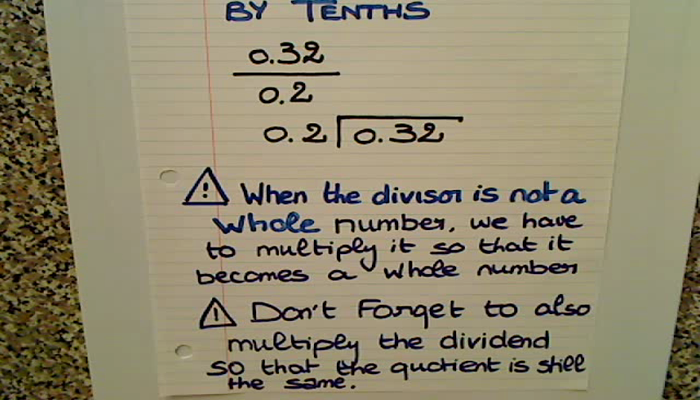 BY TENTHS
0.32
0.2
0.2 0.32
! When the divisor is not a
whole number, we have
to multiply it so that it
becomes a whole number
! Don't Forget to also
multiply the dividend
so that the quotient is still
the same.